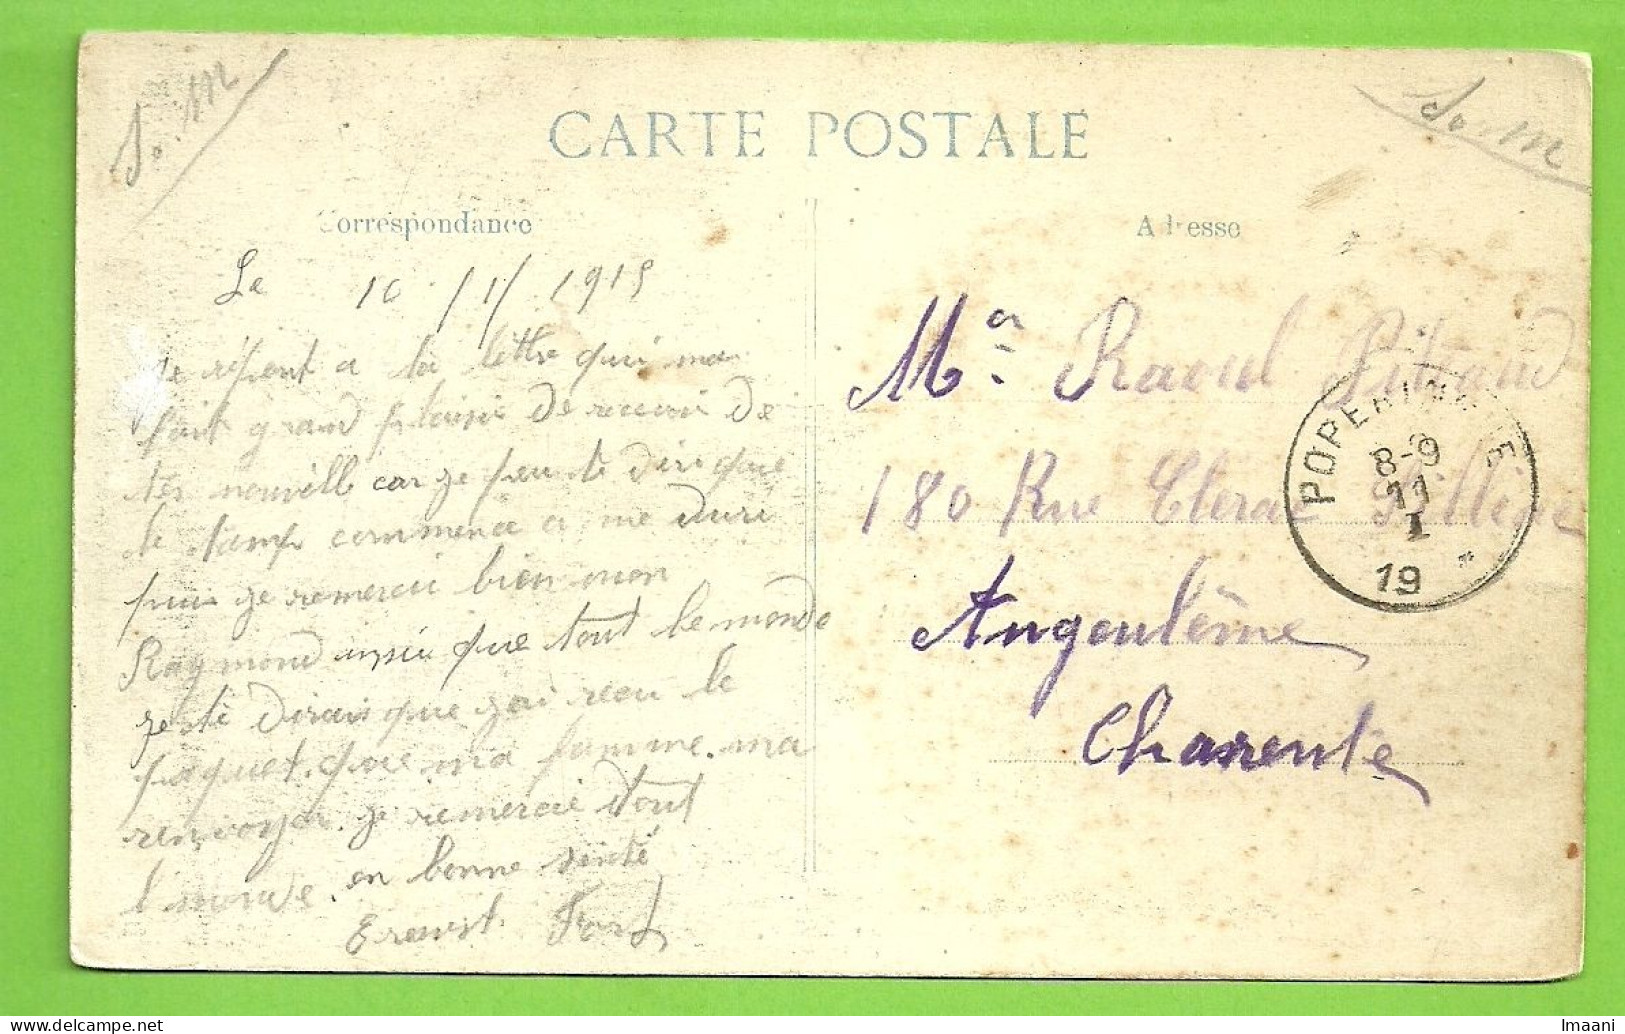 S. M
CARTE POSTALE
S. M
Correspondance
Adresse
Le 10 / 1 / 1915
Je répont a ta lettre qui ma
fait grand plaisir de recevoir de
tes nouvelle car je peu te dire que
le tamp commence a me duré
puis je remerci bien mon
Raymond ausii que tout le monde
je te dirais que j'ai recu le
paquet que ma famme ma
renvoyer je remercie tout
l monde en bonne santé
Ernest Fort
Mr Raoul
180 Rue
Angoulême
Charente
POPERINGHE
8-9
11
I
19
Imaani